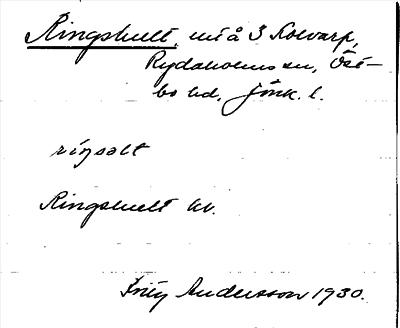 Ringshult, utå 3 Kolvarp,
Rydaholms sn, Öst-
bo hd, Jönk. l.
riŋsɔlt
Ringshult hv.
Andersson 1930.